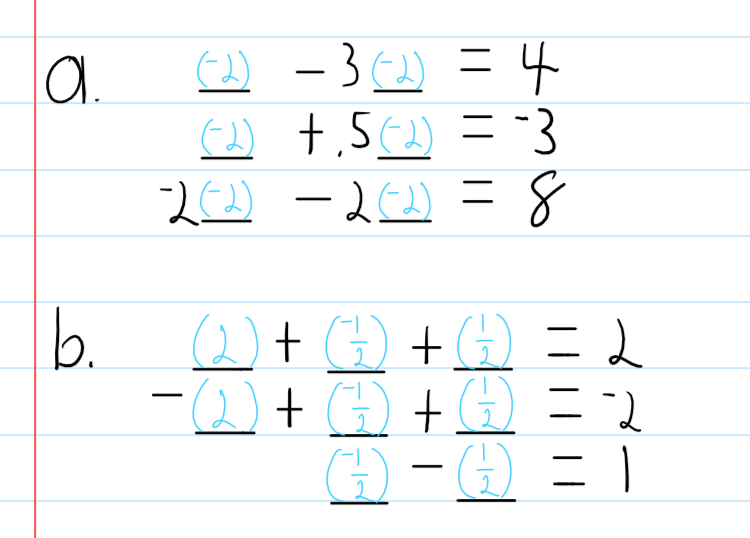 a. (⁻2) − 3(⁻2) = 4
(⁻2) + .5(⁻2) = ⁻3
⁻2(⁻2) − 2(⁻2) = 8
b. (2) + (⁻1/2) + (1/2) = 2
−(2) + (⁻1/2) + (1/2) = ⁻2
(⁻1/2) − (1/2) = 1